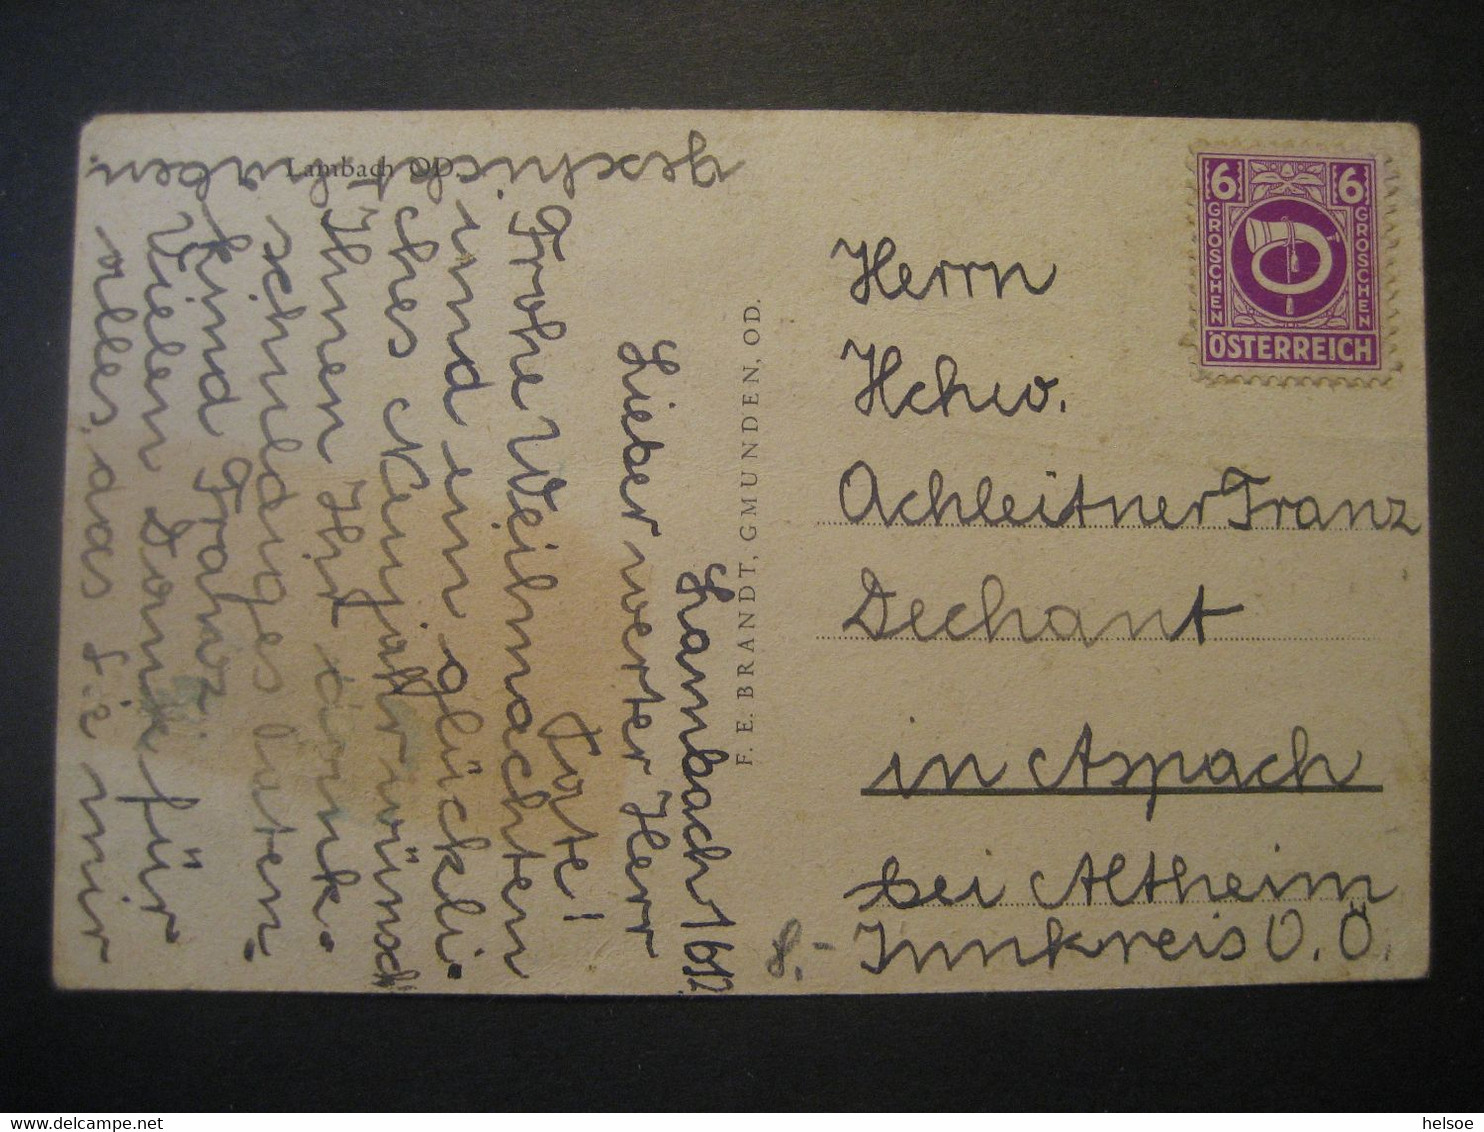 Lambach OD.
Lambach 16/12.
Lieber werter Herr
Pate!
Frohe Weihnachten
und ein glückli-
ches Neujahr wünscht
Ihnen Ihr dank-
schuldiges Paten-
kind Franz
Vielen Dank für
alles, das Sie mir
geschickt haben.
F. E. BRANDT, GMUNDEN, OD.
6 6
GROSCHEN GROSCHEN
ÖSTERREICH
Herrn
Hchw.
Achleitner Franz
Dechant
in Aspach
bei Altheim
Innkreis O. Ö.
8.-
helsoe